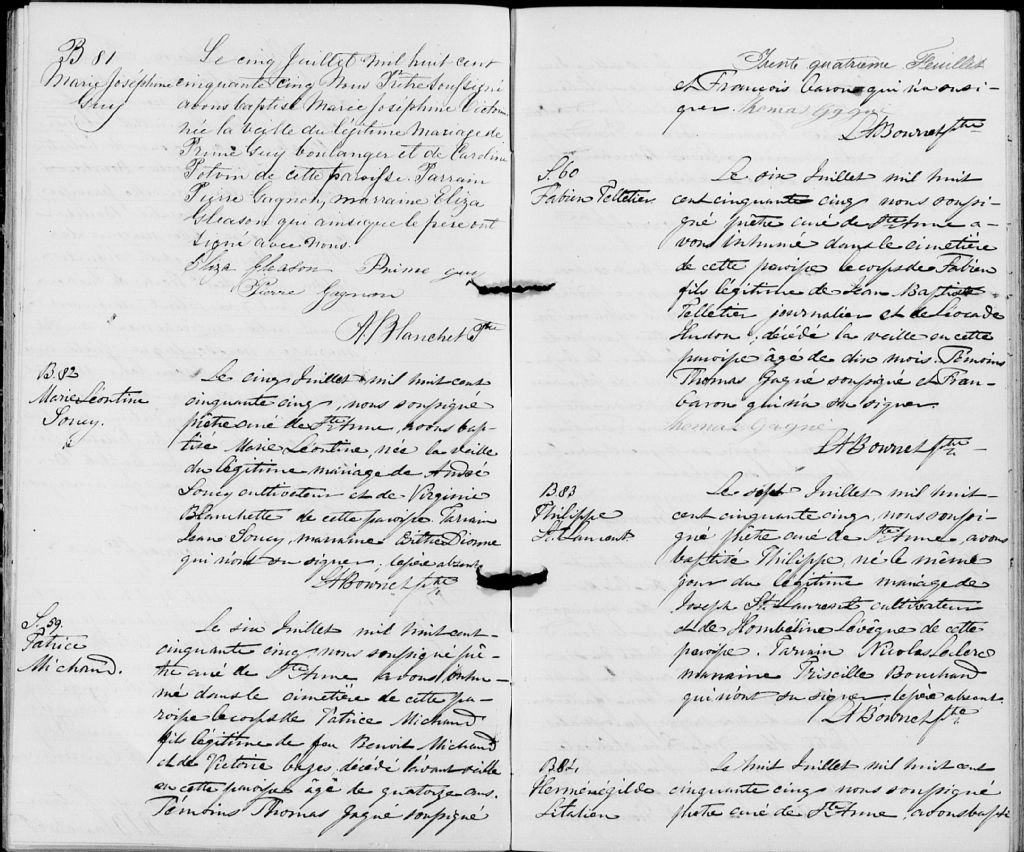 B 81
Marie Josephine
Guy
Le cinq Juillet mil huit cent
cinquante cinq Nous Prêtre Soussigné
avons baptisé Marie Josephine Victoria
née la veille du légitime mariage de
Prime Guy boulanger et de Caroline
Potvin de cette paroisse. Parrain
Pierre Gagnon, marraine Eliza
Gleason qui ainsi que le père ont
signé avec nous.
Eliza Gleason Prime guy
Pierre Gagnon
A Blanchet Ptre
B.82
Marie Léontine
Soucy.
Le cinq Juillet mil huit cent
cinquante cinq, nous soussigné
prêtre curé de Ste Anne, avons bap-
tisé Marie Léontine, née la veille
du légitime mariage de André
Soucy cultivateur et de Virginie
Blanchette de cette paroisse. Parrain
Jean Soucy, marraine Dionne
qui n'ont su signer, le père absent
LABourret Ptre
S. 59.
Patrice
Michaud.
Le six Juillet mil huit cent
cinquante cinq nous soussigné prê-
tre curé de Ste Anne, avons inhu-
mé dans le cimetière de cette pa-
roisse le corps de Patrice Michaud
fils légitime de feu Benoit Michaud
et de Victorie, décédé l'avant veille
en cette paroisse âgé de quatorze ans.
Témoins Thomas Gagné soussigné
Trente quatrième Feuillet
et François baron qui n'a su si-
gner Thomas Gagné
LABourret Ptre
S. 60
Fabien Pelletier
Le six Juillet mil huit
cent cinquante cinq nous soussi-
gné prêtre curé de Ste Anne a-
vons inhumé dans le cimetière
de cette paroisse le corps de Fabien
fils légitime de Jean Baptiste
Pelletier journalier et de Léocade
Hudon, décédé la veille en cette
paroisse âgé de dix mois. Témoins
Thomas Gagné soussigné et Fran-
baron qui n'a su signer.
Thomas Gagné
LABourret Ptre
B 83
Philippe
St. Laurent.
Le sept Juillet mil huit
cent cinquante cinq, nous soussi-
gné prêtre curé de Ste Anne, avons
baptisé Philippe, né le même
jour du légitime mariage de
Joseph St. Laurent cultivateur
et de Hombeline Lévêque de cette
paroisse. Parrain Nicolas Leclerc
marraine Priscille Bouchard
qui n'ont su signer, le père absent.
LABourret Ptre
B 84
Hermenegilde
Litalien
Le huit Juillet mil huit cent
cinquante cinq nous soussigné
prêtre curé de Ste Anne, avons baptisé